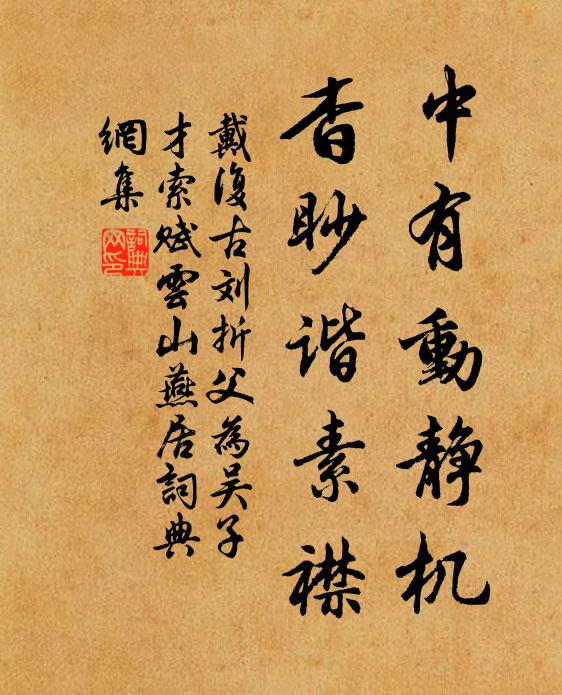 中有動静机
杳眇谐素襟
戴復古刘折父為吴子
才索赋雲山燕居詞典
網集
詞典網印